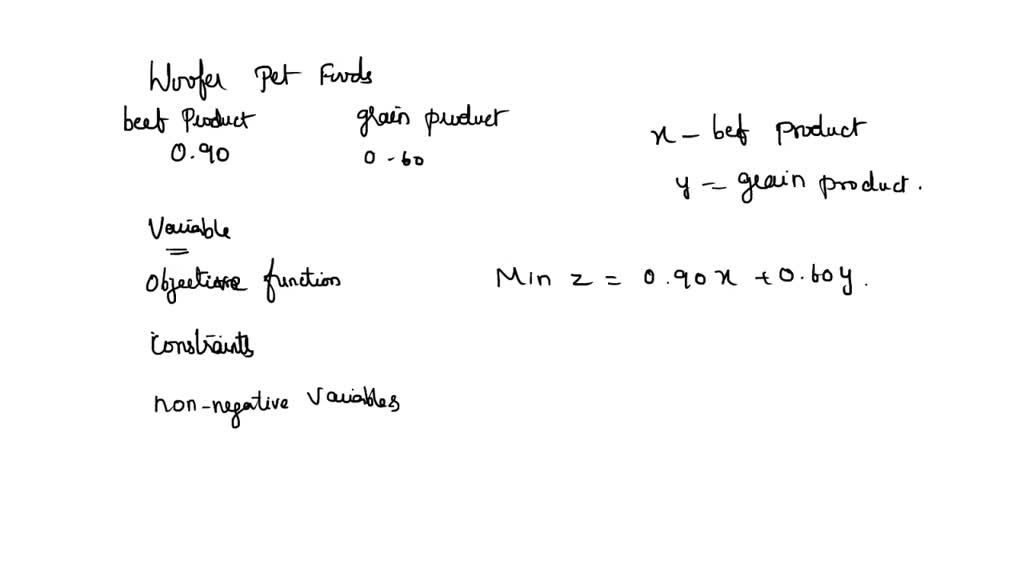 Woofer Pet Foods
beef Product grain product
0.90 0-60
x - bef product
y = grain product.
Variable
Objective function Min z = 0.90x + 0.60y.
Constraints
non-negative Variables